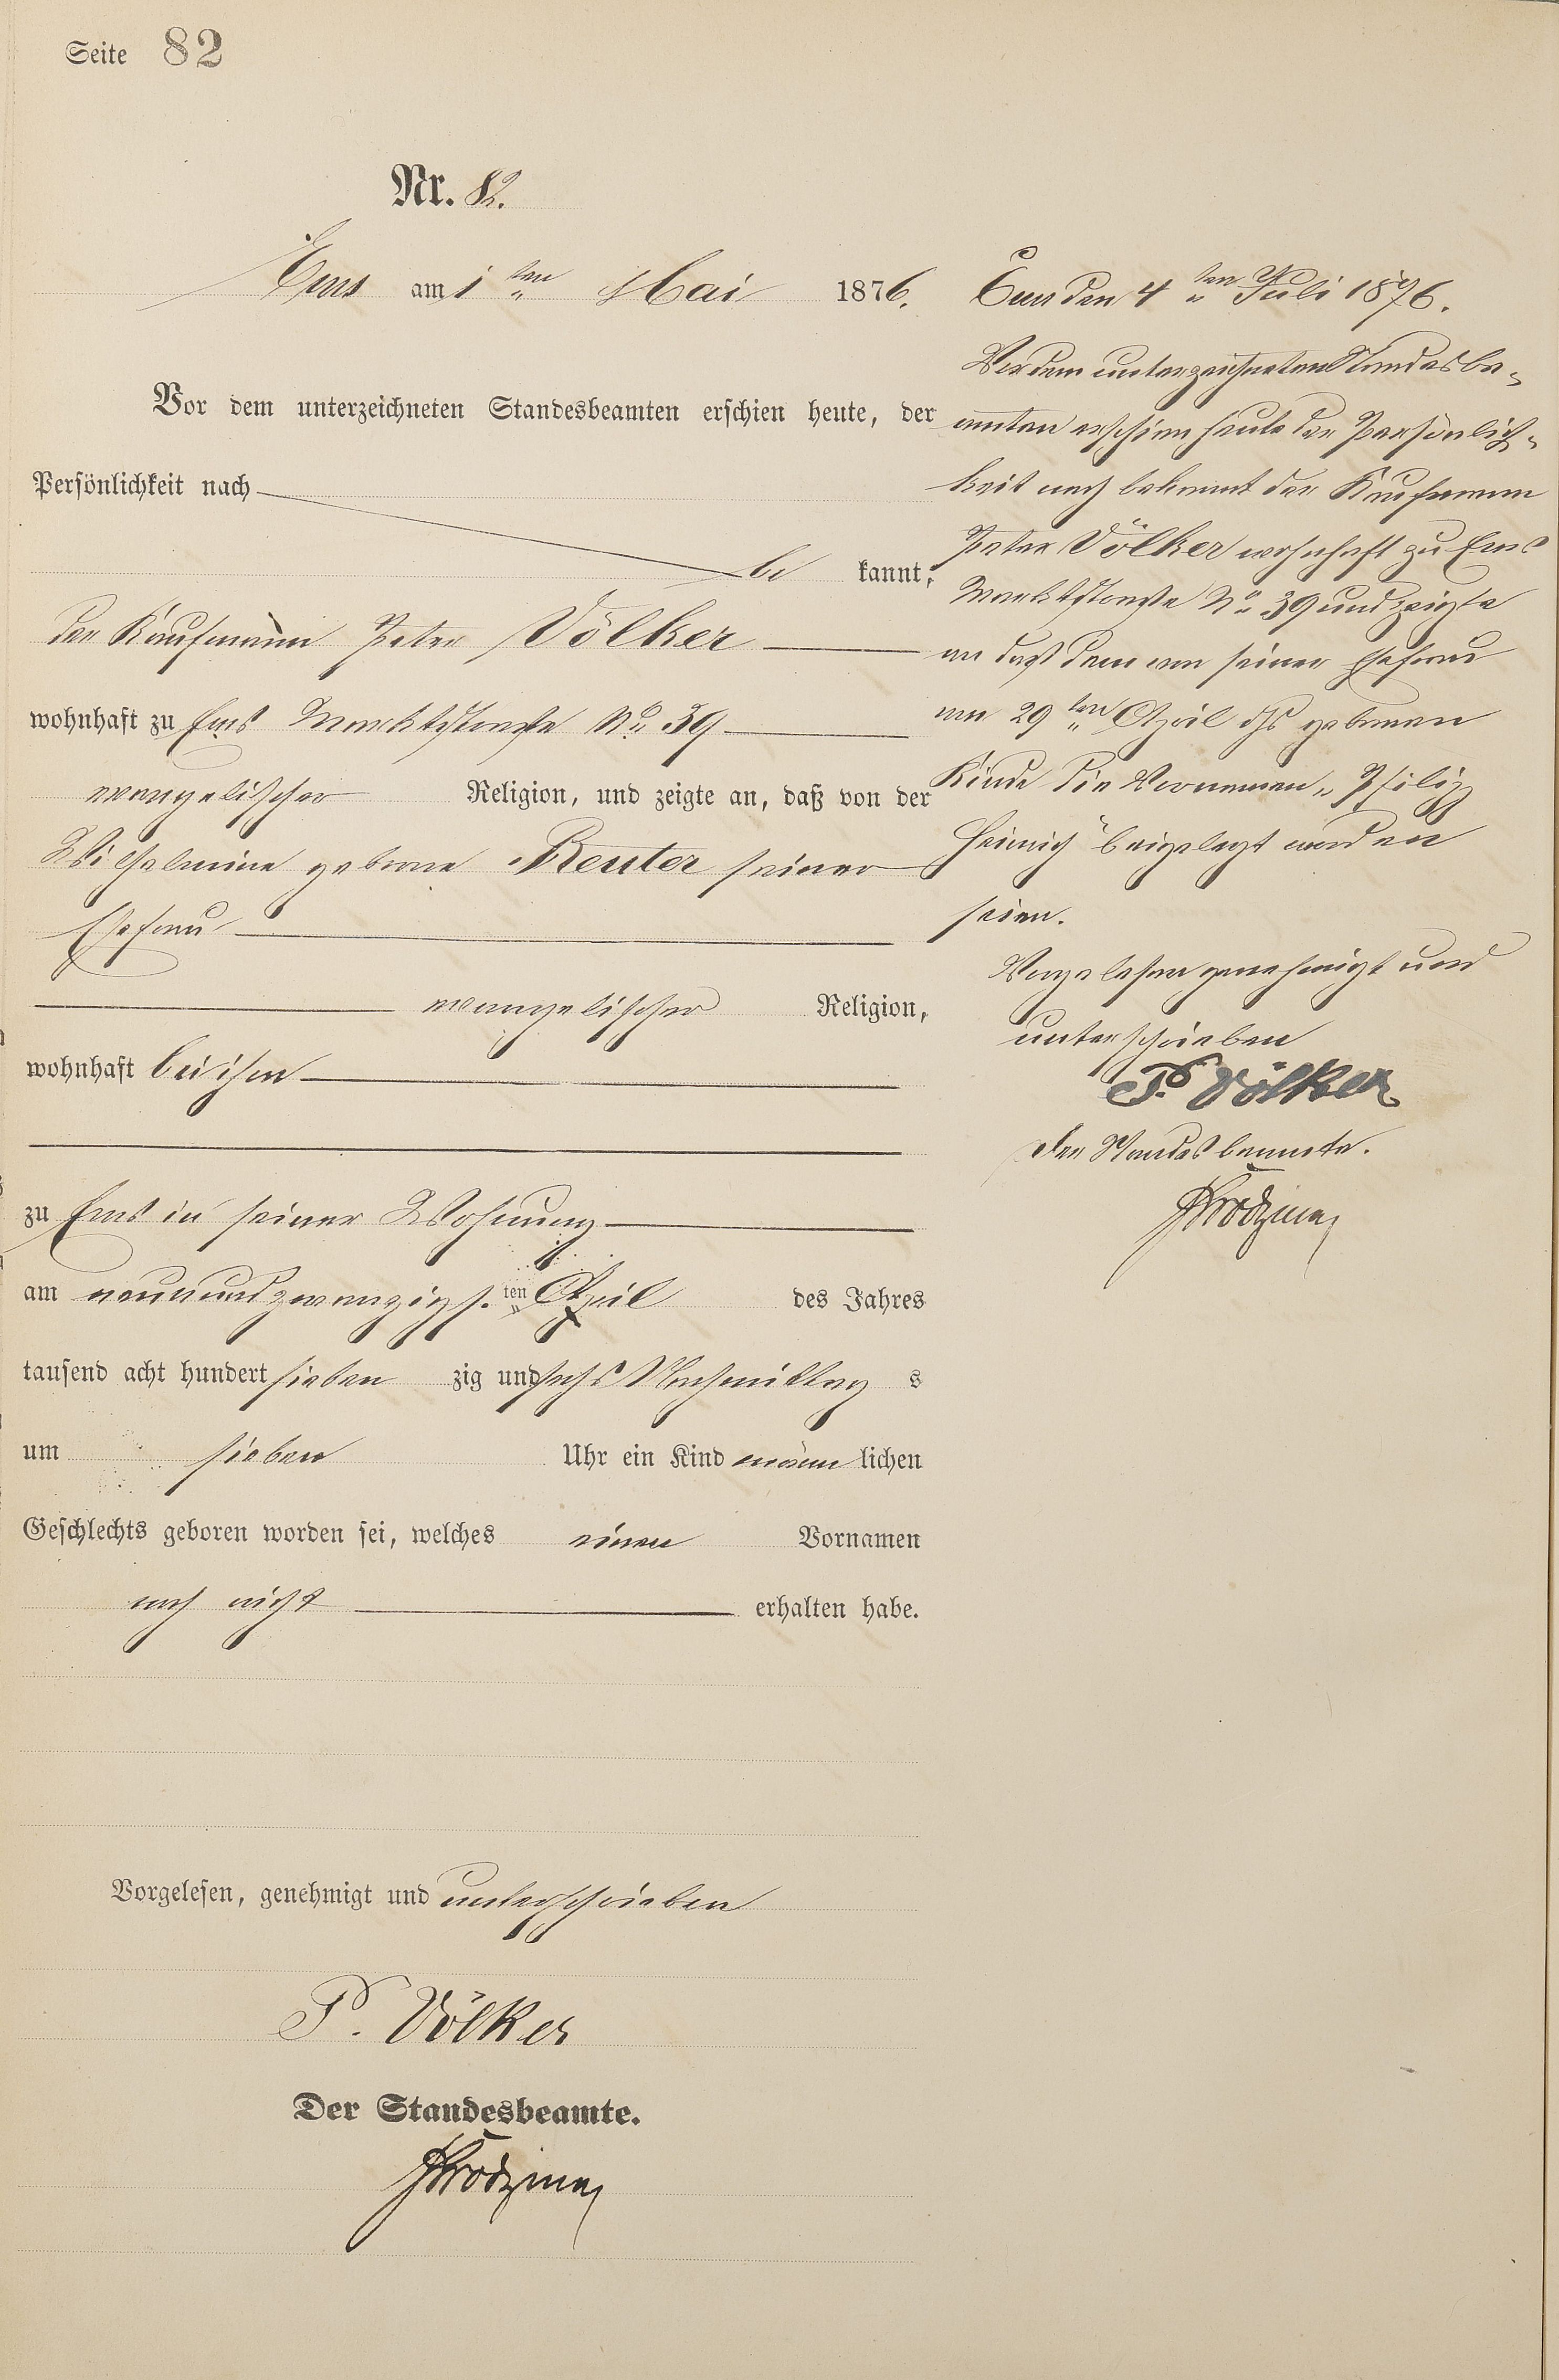 Seite 82
Nr. 82.
Ems am 1ten Mai 1876.
Vor dem unterzeichneten Standesbeamten erschien heute, der
Persönlichkeit nach
be kannt,
der Kaufmann Peter Völker
wohnhaft zu Ems Marktstraße No 39
evangelischer Religion, und zeigte an, daß von der
Wilhelmine geborne Reuter seiner
Ehefrau
evangelischer Religion,
wohnhaft bei ihm
zu Ems in seiner Wohnung
am neunundzwanzigs. ten April des Jahres
tausend acht hundert sieben zig und sechs Nachmittag s
um sieben Uhr ein Kind männ lichen
Geschlechts geboren worden sei, welches einen Vornamen
noch nicht erhalten habe.
Vorgelesen, genehmigt und unterschrieben
P. Völker
Der Standesbeamte.
Ems den 4ten Juli 1876.
Vor dem unterzeichneten Standesbe-
amten erschien heute der Persönlich-
keit nach bekannt der Kaufmann
Peter Völker wohnhaft zu Ems
Marktstraße No 39 und zeigte
an daß dem von seiner Ehefrau
am 29ten April ds geborenen
Kinde die Vornamen „Philipp
Heinrich" beigelegt worden
seien.
Vorgelesen genehmigt und
unterschrieben
P. Völker
Der Standesbeamte.